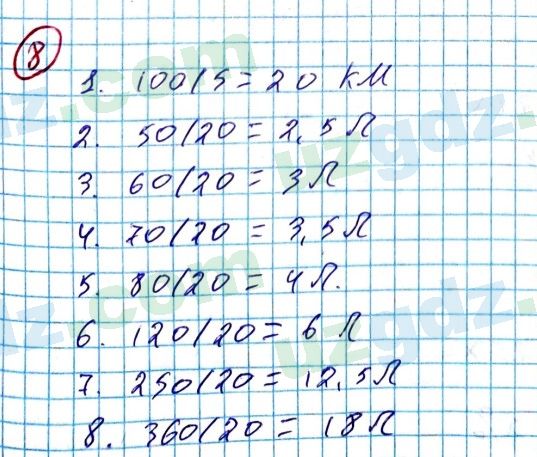 8
1. 100/5 = 20 КМ
2. 50/20 = 2,5 Л
3. 60/20 = 3 Л
4. 70/20 = 3,5 Л
5. 80/20 = 4 Л.
6. 120/20 = 6 Л
7. 250/20 = 12,5 Л
8. 360/20 = 18 Л
uzgdz.com
uzgdz.com